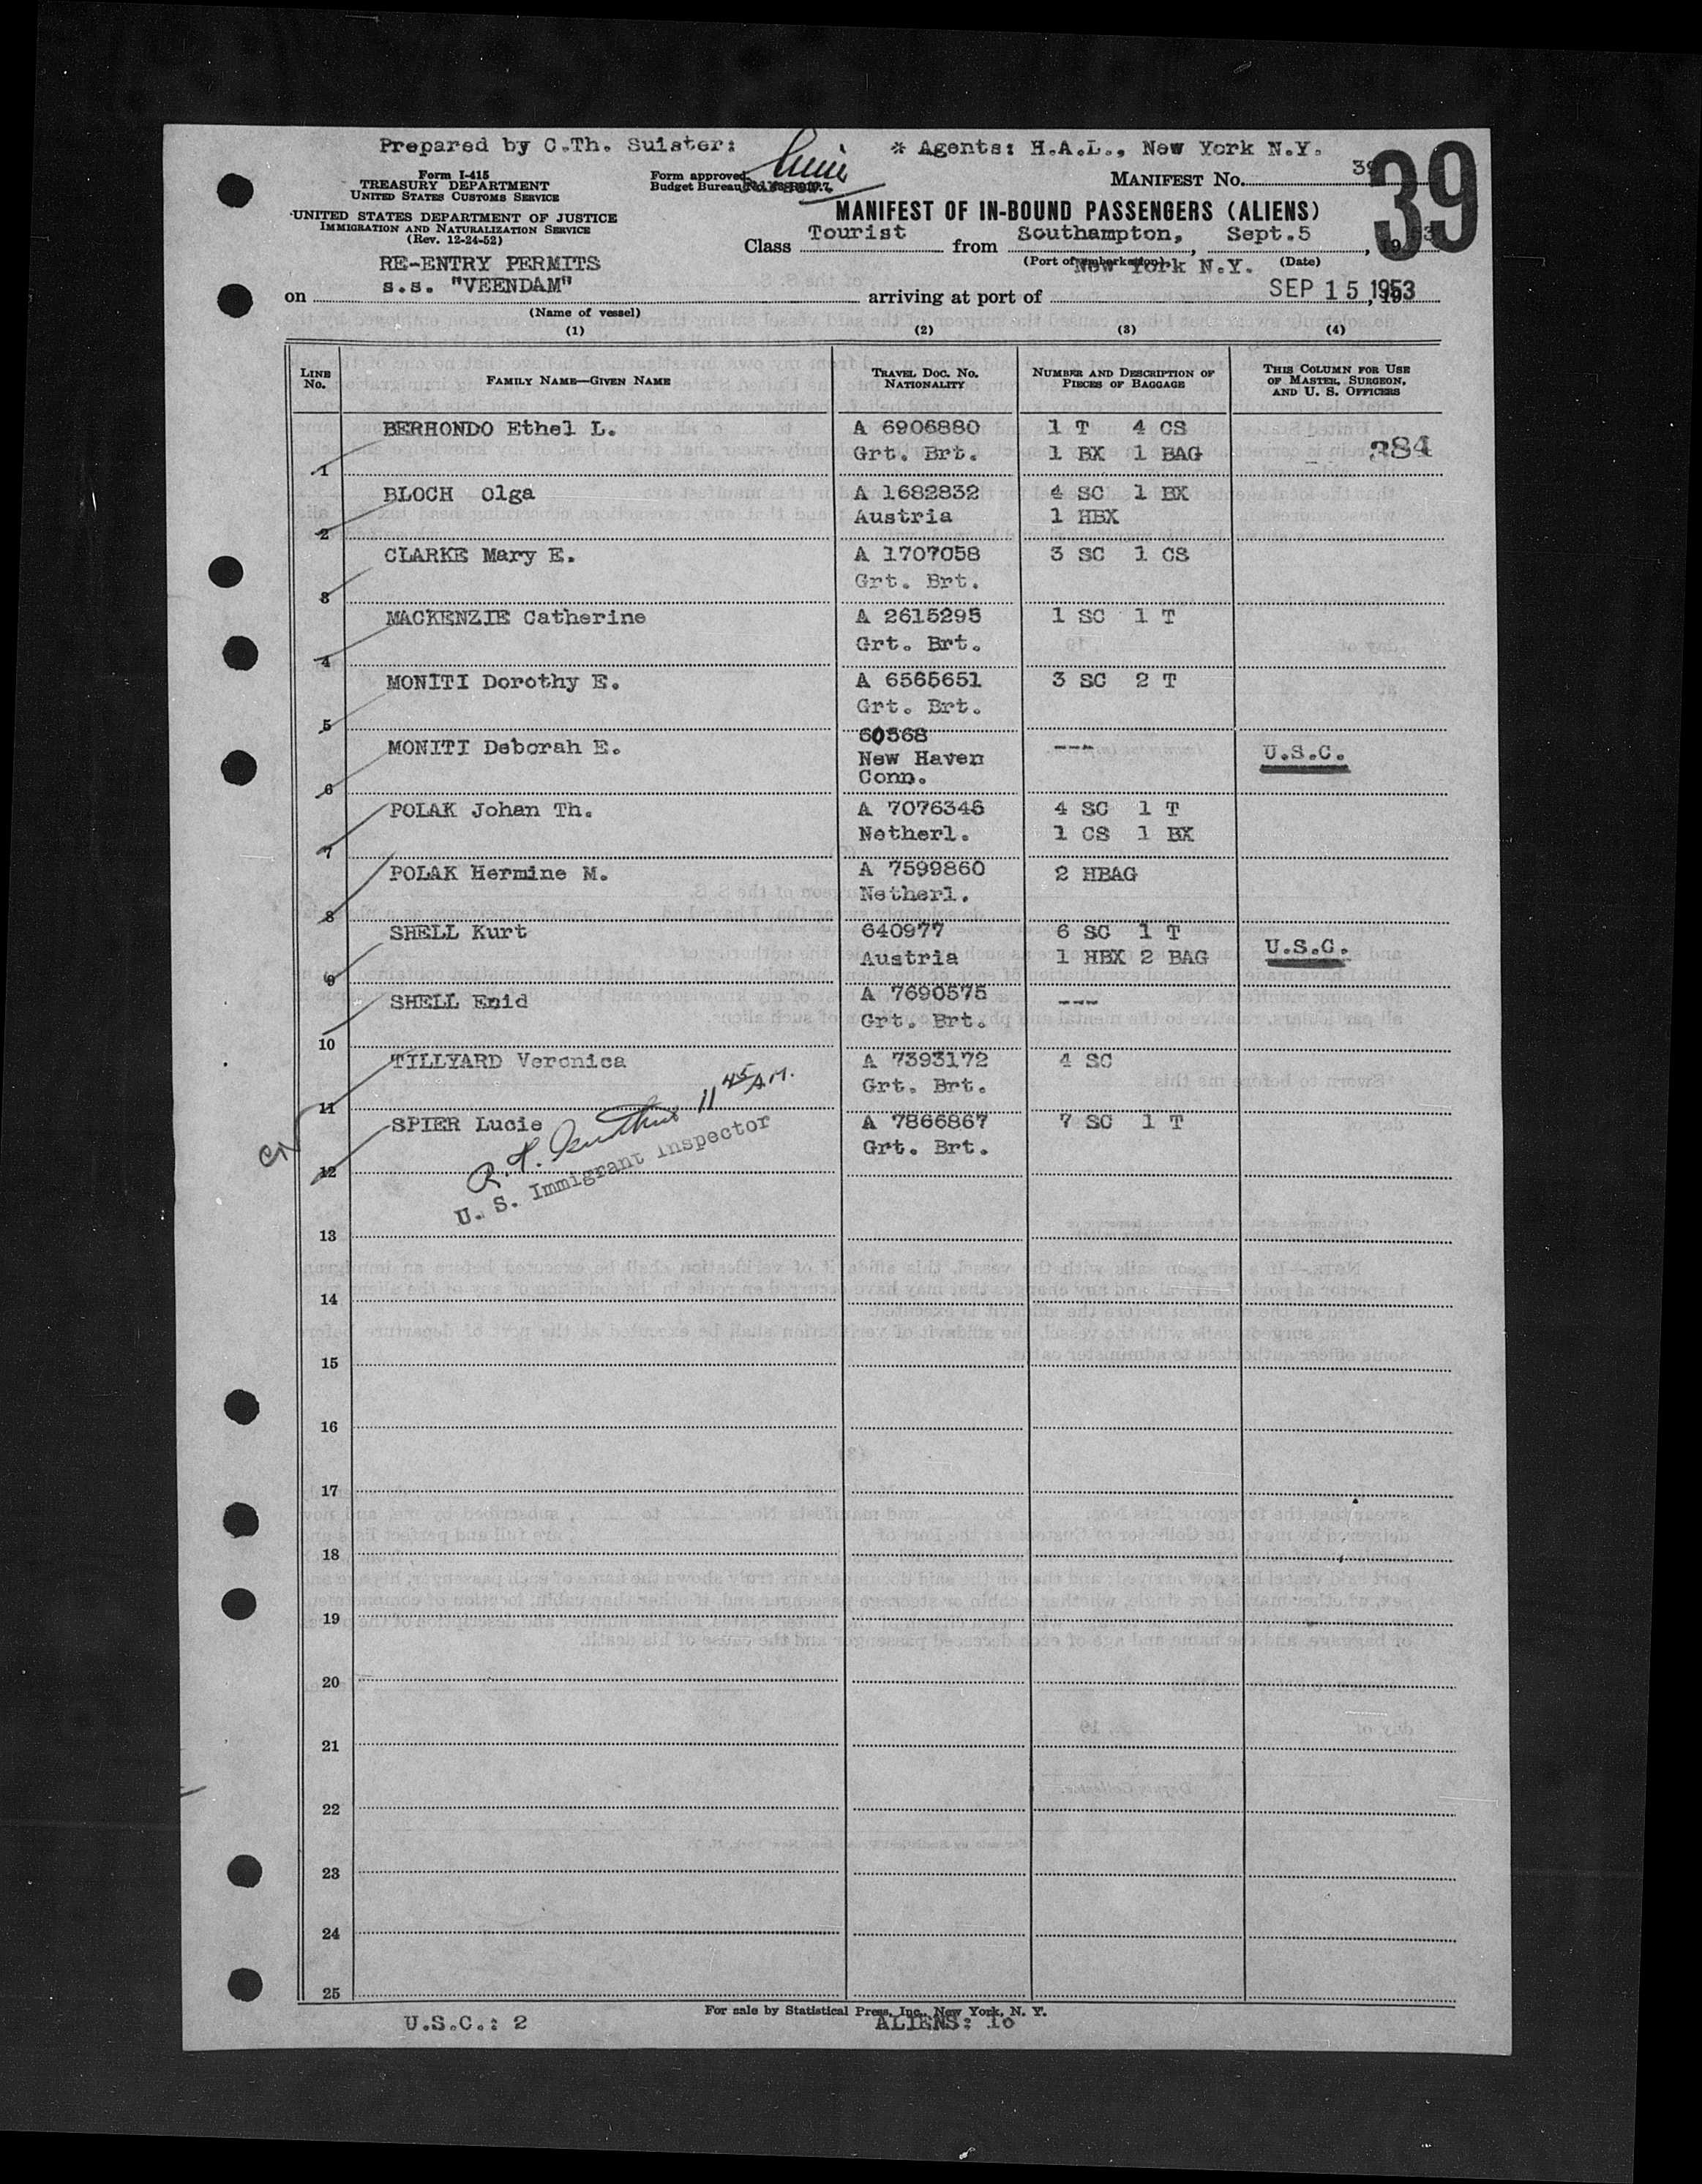 Prepared by C.Th. Suister: * Agents: H.A.L., New York N.Y.
Form I-415
TREASURY DEPARTMENT
UNITED STATES CUSTOMS SERVICE
Form approved.
Budget Bureau
MANIFEST No. 39
39
UNITED STATES DEPARTMENT OF JUSTICE
IMMIGRATION AND NATURALIZATION SERVICE
(Rev. 12-24-52)
MANIFEST OF IN-BOUND PASSENGERS (ALIENS)
Class Tourist from Southampton, Sept.5, 1953
(Port of embarkation) (Date)
RE-ENTRY PERMITS
on s.s. "VEENDAM" arriving at port of New York N.Y. SEP 15 1953
(Name of vessel)
(1) (2) (3) (4)
LINE No. FAMILY NAME—GIVEN NAME TRAVEL DOC. NO. NATIONALITY NUMBER AND DESCRIPTION OF PIECES OF BAGGAGE THIS COLUMN FOR USE OF MASTER, SURGEON, AND U. S. OFFICERS
BERHONDO Ethel L. A 6906880 1 T 4 CS
1 Grt. Brt. 1 BX 1 BAG 384
BLOCH Olga A 1682832 4 SC 1 BX
2 Austria 1 HBX
CLARKE Mary E. A 1707058 3 SC 1 CS
3 Grt. Brt.
MACKENZIE Catherine A 2615295 1 SC 1 T
4 Grt. Brt.
MONITI Dorothy E. A 6565651 3 SC 2 T
5 Grt. Brt.
60568
MONITI Deborah E. New Haven --- U.S.C.
6 Conn.
POLAK Johan Th. A 7076346 4 SC 1 T
7 Netherl. 1 CS 1 BX
POLAK Hermine M. A 7599860 2 HBAG
8 Netherl.
SHELL Kurt 640977 6 SC 1 T U.S.C.
9 Austria 1 HBX 2 BAG
SHELL Enid A 7690575 ---
10 Grt. Brt.
TILLYARD Veronica A 7393172 4 SC
11 Grt. Brt.
11 45 A.M.
SPIER Lucie A 7866867 7 SC 1 T
12 Grt. Brt.
U. S. Immigrant Inspector
13
14
15
16
17
18
19
20
21
22
23
24
25
For sale by Statistical Press, Inc., New York, N. Y.
U.S.C.: 2 ALIENS: 10